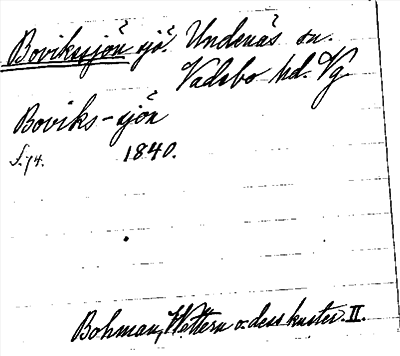 Bovikssjön sjö. Undenäs sn.
Vadsbo hd. Vg
Boviks-sjön
S. 74. 1840.
Bohman, Wettern o. dess kuster. II.